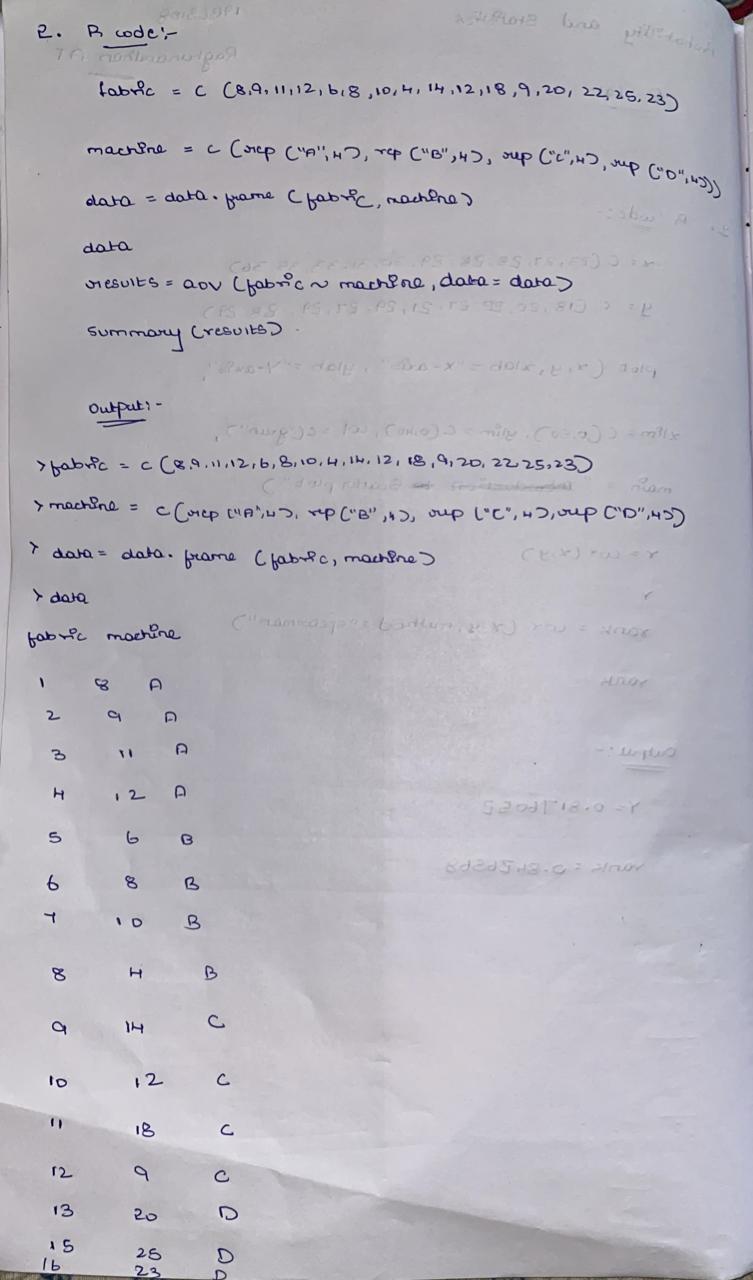 2. R code:-
fabric = c (8,9,11,12,6,8,10,4,14,12,18,9,20,22,25,23)
machine = c (rep ("A",4), rep ("B",4), rep ("C",4), rep ("D",4))
data = data.frame (fabric, machine)
data
results = aov (fabric ~ machine, data = data)
summary (results)
Output:-
> fabric = c (8,9,11,12,6,8,10,4,14,12,18,9,20,22,25,23)
> machine = c (rep ("A",4), rep ("B",4), rep ("C",4), rep ("D",4))
> data = data.frame (fabric, machine)
> data
fabric machine
1 8 A
2 9 A
3 11 A
4 12 A
5 6 B
6 8 B
7 10 B
8 4 B
9 14 C
10 12 C
11 18 C
12 9 C
13 20 D
15 25 D
16 23 D